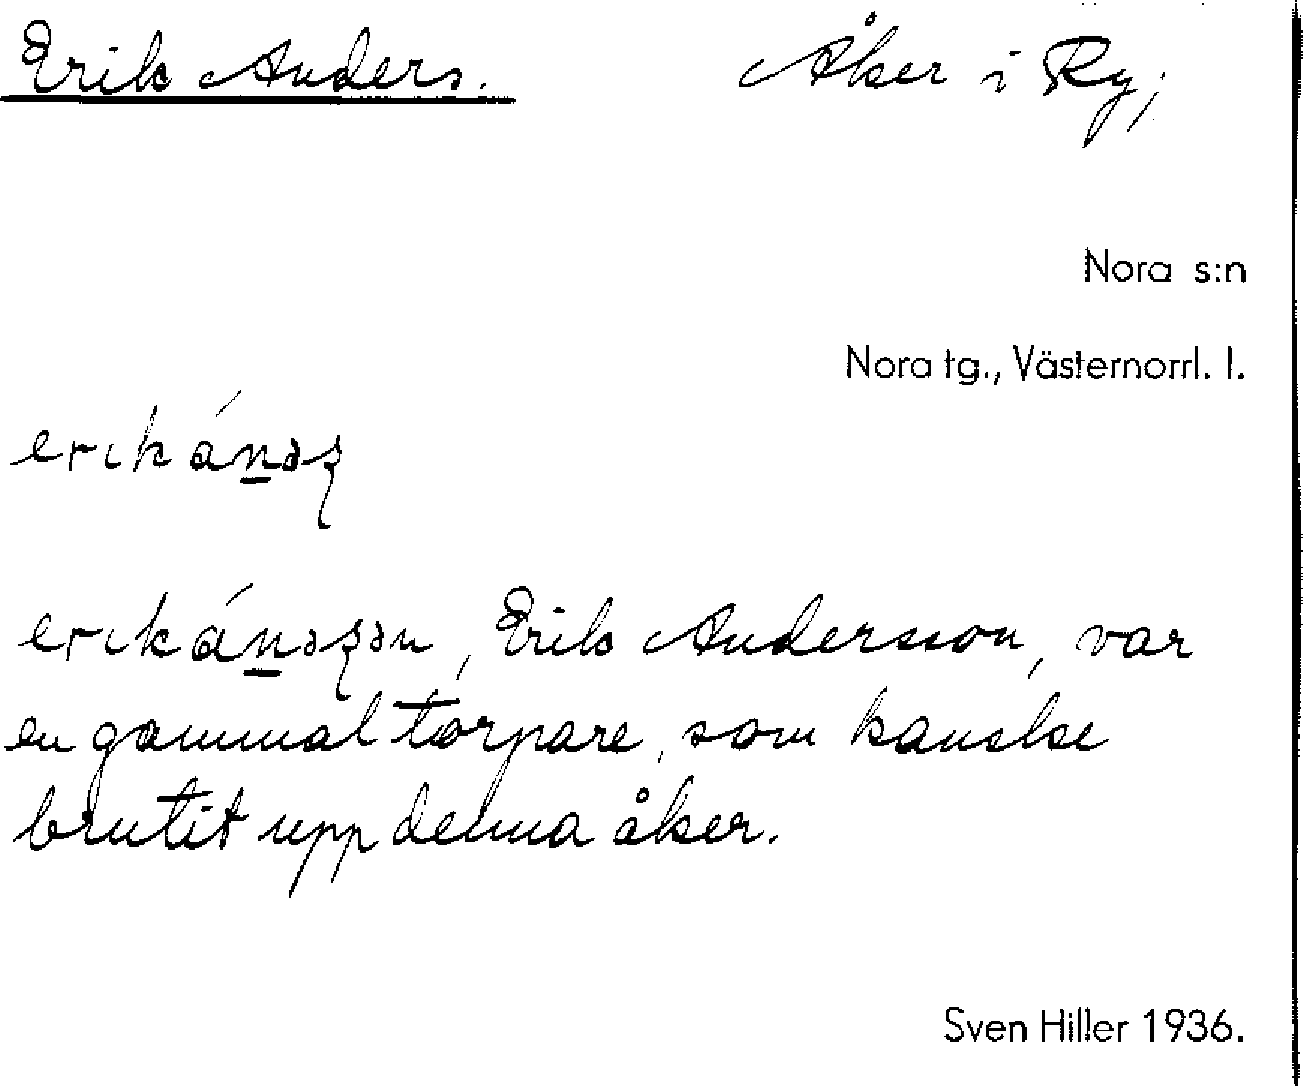 Erik Anders. Åker i Ry;
Nora s:n
Nora tg., Västernorrl. l.
erikánəʂ
erikánəʂən, Erik Andersson, var
en gammal torpare, som kanske
brutit upp denna åker.
Sven Hiller 1936.